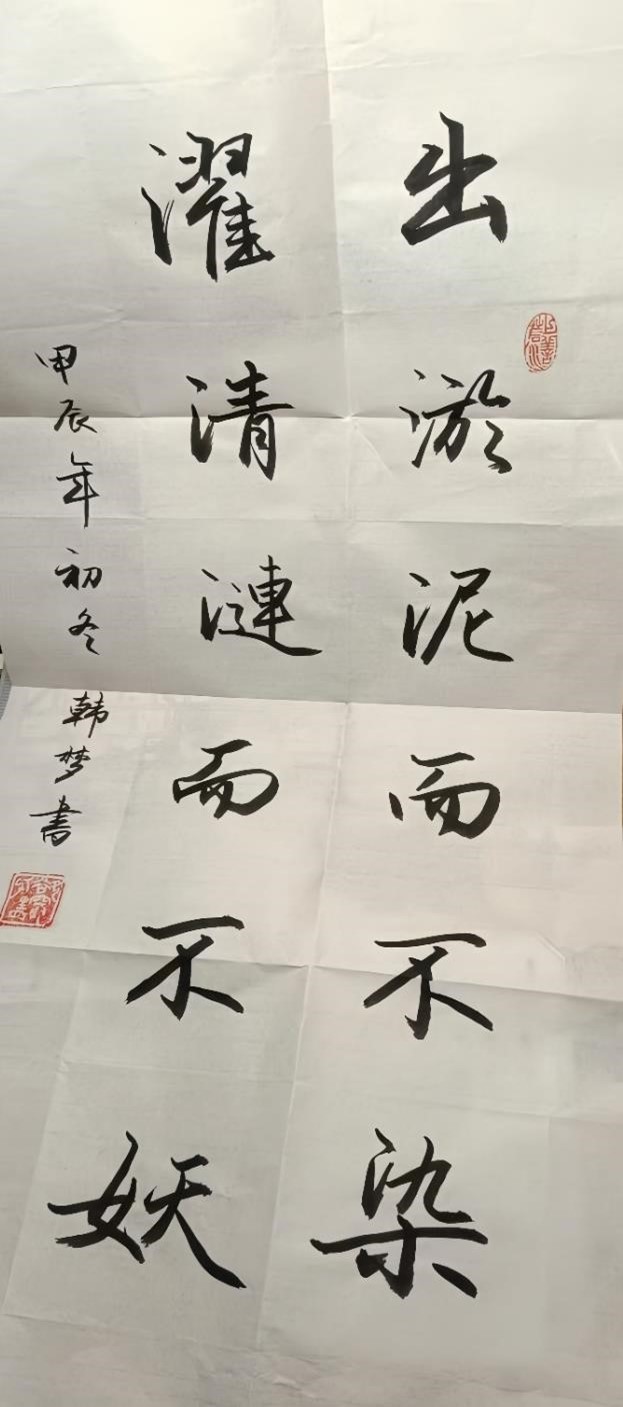 出淤泥而不染
濯清漣而不妖
甲辰年初冬韩梦書